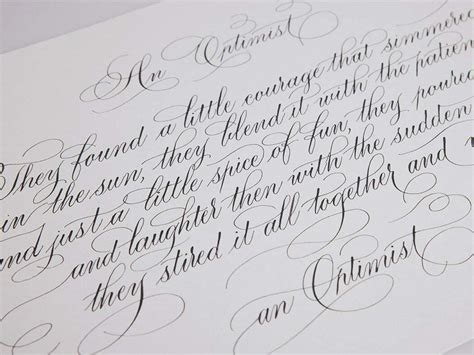 An Optimist
They found a little courage that simmered
in the sun, they blend it with the patien
and just a little spice of fun, they poured
and laughter then with the sudden
they stired it all together and
an Optimist